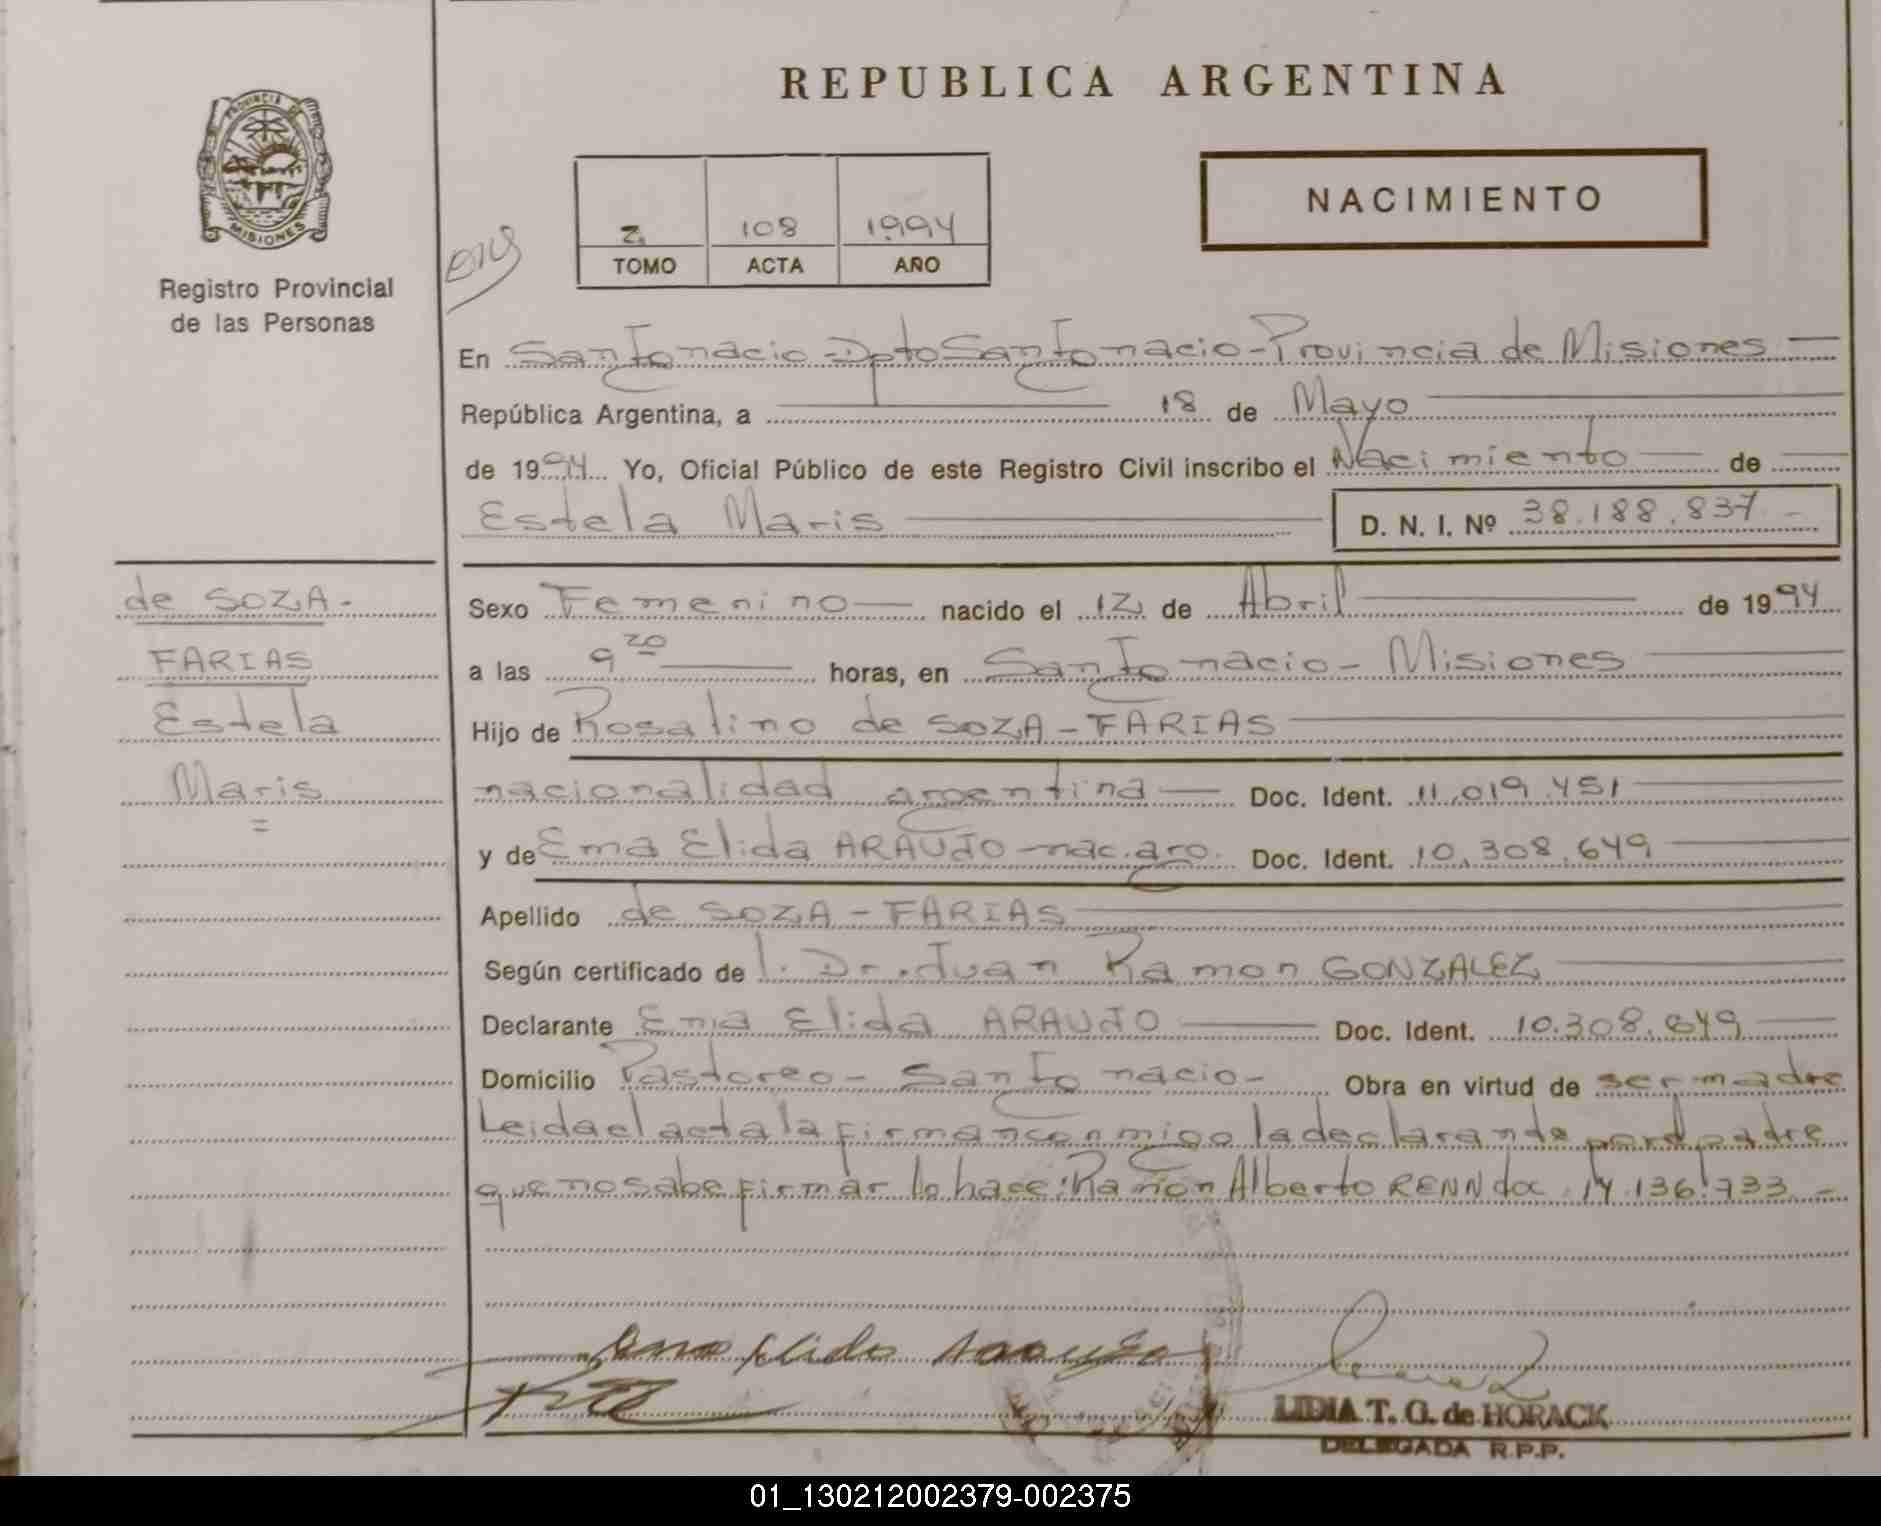 REPUBLICA ARGENTINA
PROVINCIA DE
MISIONES
Registro Provincial
de las Personas
NACIMIENTO
2. 108 1994
TOMO ACTA AÑO
En San Ignacio - Dpto San Ignacio - Provincia de Misiones
República Argentina, a 18 de Mayo
de 1994 Yo, Oficial Público de este Registro Civil inscribo el Nacimiento de
Estela Maris D. N. I. Nº 38.188.837 -
de SOZA-
FARIAS
Estela
Maris
=
Sexo Femenino nacido el 12 de Abril de 1994
a las 9 20 horas, en San Ignacio - Misiones
Hijo de Rosalino de SOZA - FARIAS
nacionalidad argentina Doc. Ident. 11.019.451
y de Ema Elida ARAUJO - nac. arg. Doc. Ident. 10.308.649
Apellido de SOZA - FARIAS
Según certificado de l. Dr. Juan Ramon GONZALEZ
Declarante Ema Elida ARAUJO Doc. Ident. 10.308.649
Domicilio Pastoreo - San Ignacio - Obra en virtud de ser madre
Leida el acta la firman conmigo la declarante por el padre
que no sabe firmar lo hace: Ramon Alberto RENN doc. 14.136.733 -
LIDIA T. G. de HORACK
DELEGADA R.P.P.
01_130212002379-002375